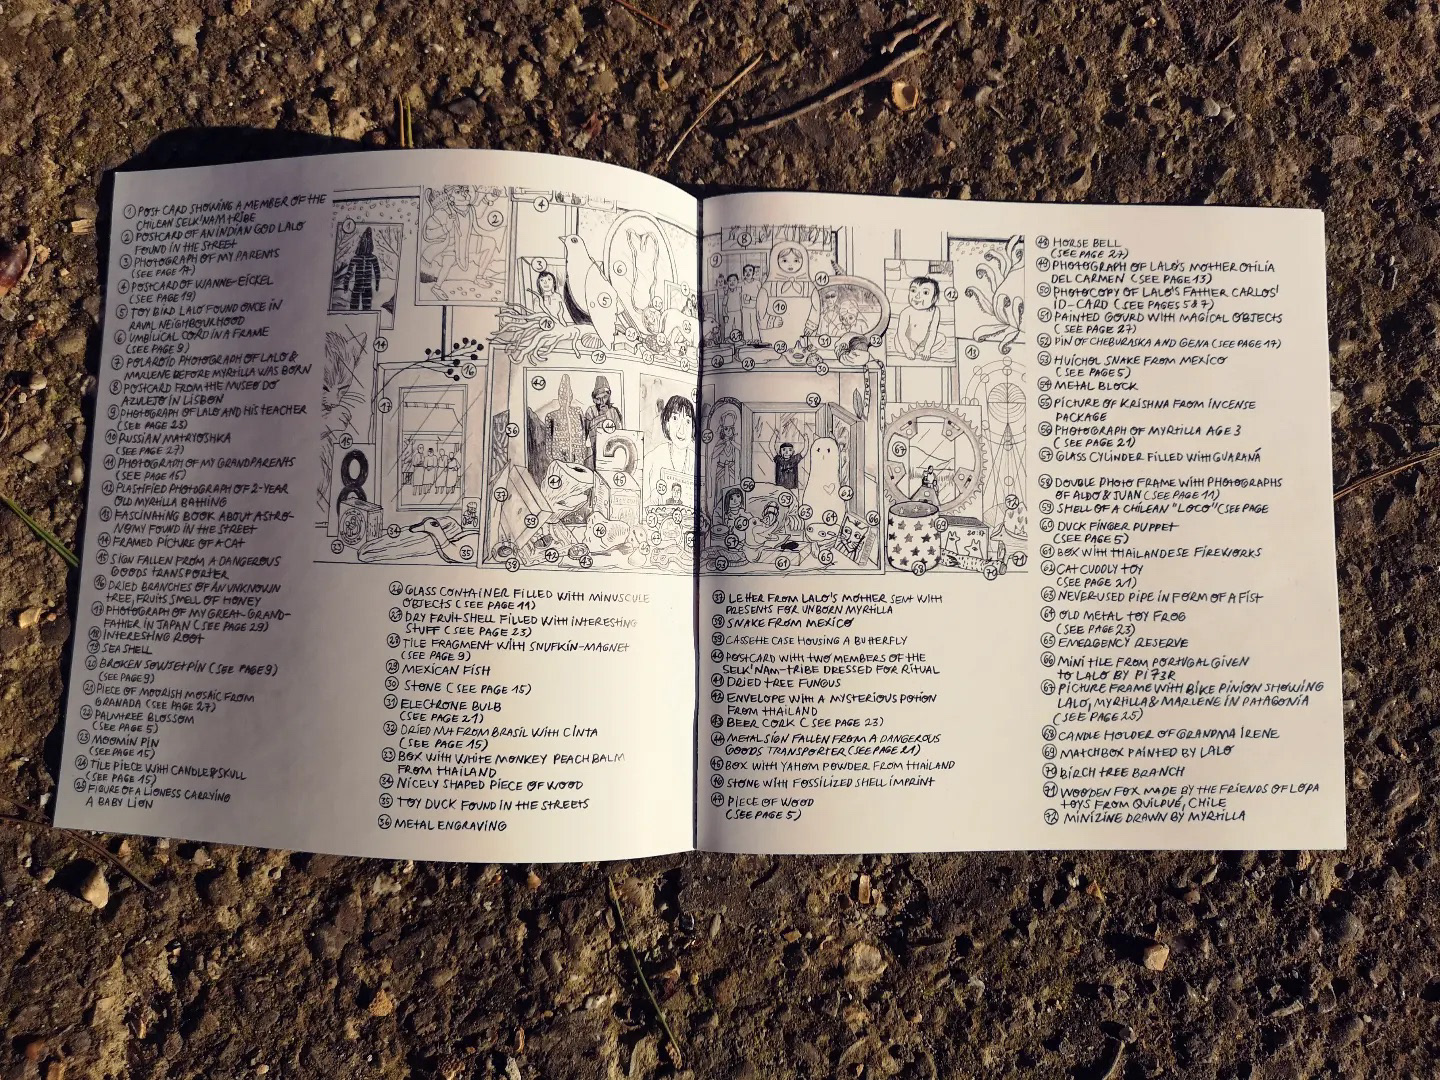 ① POST CARD SHOWING A MEMBER OF THE
CHILEAN SELK'NAM TRIBE
② POSTCARD OF AN INDIAN GOD LALO
FOUND IN THE STREET
③ PHOTOGRAPH OF MY PARENTS
(SEE PAGE 17)
④ POSTCARD OF WANNE-EICKEL
(SEE PAGE 19)
⑤ TOY BIRD LALO FOUND ONCE IN
RAVAL NEIGHBOURHOOD
⑥ UMBILICAL CORD IN A FRAME
(SEE PAGE 9)
⑦ POLAROID PHOTOGRAPH OF LALO &
MARLENE BEFORE MYRTILLA WAS BORN
⑧ POSTCARD FROM THE MUSEO DO
AZULEJO IN LISBON
⑨ PHOTOGRAPH OF LALO AND HIS TEACHER
(SEE PAGE 23)
⑩ RUSSIAN MATRYOSHKA
(SEE PAGE 27)
⑪ PHOTOGRAPH OF MY GRANDPARENTS
(SEE PAGE 15)
⑫ PLASTIFIED PHOTOGRAPH OF 2-YEAR
OLD MYRTILLA BATHING
⑬ FASCINATING BOOK ABOUT ASTRO-
NOMY FOUND IN THE STREET
⑭ FRAMED PICTURE OF A CAT
⑮ SIGN FALLEN FROM A DANGEROUS
GOODS TRANSPORTER
⑯ DRIED BRANCHES OF AN UNKNOWN
TREE, FRUITS SMELL OF HONEY
⑰ PHOTOGRAPH OF MY GREAT-GRAND-
FATHER IN JAPAN (SEE PAGE 29)
⑱ INTERESTING ROOT
⑲ SEA SHELL
⑳ BROKEN SOWJET PIN (SEE PAGE 9)
(SEE PAGE 9)
㉑ PIECE OF MOORISH MOSAIC FROM
GRANADA (SEE PAGE 27)
㉒ PALMTREE BLOSSOM
(SEE PAGE 5)
㉓ MOOMIN PIN
(SEE PAGE 15)
㉔ TILE PIECE WITH CANDLE & SKULL
(SEE PAGE 15)
㉕ FIGURE OF A LIONESS CARRYING
A BABY LION
㉖ GLASS CONTAINER FILLED WITH MINUSCULE
OBJECTS (SEE PAGE 11)
㉗ DRY FRUIT SHELL FILLED WITH INTERESTING
STUFF (SEE PAGE 23)
㉘ TILE FRAGMENT WITH SNUFKIN-MAGNET
(SEE PAGE 9)
㉙ MEXICAN FISH
㉚ STONE (SEE PAGE 15)
㉛ ELECTRONE BULB
(SEE PAGE 21)
㉜ DRIED NUT FROM BRASIL WITH CINTA
(SEE PAGE 15)
㉝ BOX WITH WHITE MONKEY PEACH BALM
FROM THAILAND
㉞ NICELY SHAPED PIECE OF WOOD
㉟ TOY DUCK FOUND IN THE STREETS
㊱ METAL ENGRAVING
㊲ LETTER FROM LALO'S MOTHER SENT WITH
PRESENTS FOR UNBORN MYRTILLA
㊳ SNAKE FROM MEXICO
㊴ CASSETTE CASE HOUSING A BUTTERFLY
㊵ POSTCARD WITH TWO MEMBERS OF THE
SELK'NAM-TRIBE DRESSED FOR RITUAL
㊶ DRIED TREE FUNGUS
㊷ ENVELOPE WITH A MYSTERIOUS POTION
FROM THAILAND
㊸ BEER CORK (SEE PAGE 23)
㊹ METAL SIGN FALLEN FROM A DANGEROUS
GOODS TRANSPORTER (SEE PAGE 21)
㊺ BOX WITH YAHOM POWDER FROM THAILAND
㊻ STONE WITH FOSSILIZED SHELL IMPRINT
㊼ PIECE OF WOOD
(SEE PAGE 5)
㊽ HORSE BELL
(SEE PAGE 27)
㊾ PHOTOGRAPH OF LALO'S MOTHER OTILIA
DEL CARMEN (SEE PAGE 13)
㊿ PHOTOCOPY OF LALO'S FATHER CARLOS'
ID-CARD (SEE PAGES 5 & 7)
51 PAINTED GOURD WITH MAGICAL OBJECTS
(SEE PAGE 27)
52 PIN OF CHEBURASKA AND GENA (SEE PAGE 17)
53 HUICHOL SNAKE FROM MEXICO
(SEE PAGE 5)
54 METAL BLOCK
55 PICTURE OF KRISHNA FROM INCENSE
PACKAGE
56 PHOTOGRAPH OF MYRTILLA AGE 3
(SEE PAGE 21)
57 GLASS CYLINDER FILLED WITH GUARANÁ
58 DOUBLE PHOTO FRAME WITH PHOTOGRAPHS
OF ALDO & JUAN (SEE PAGE 11)
59 SHELL OF A CHILEAN "LOCO" (SEE PAGE
60 DUCK FINGER PUPPET
(SEE PAGE 5)
61 BOX WITH THAILANDESE FIREWORKS
62 CAT CUDDLY TOY
(SEE PAGE 21)
63 NEVER USED PIPE IN FORM OF A FIST
64 OLD METAL TOY FROG
(SEE PAGE 23)
65 EMERGENCY RESERVE
66 MINI TILE FROM PORTUGAL GIVEN
TO LALO BY PI73R
67 PICTURE FRAME WITH BIKE PINION SHOWING
LALO, MYRTILLA & MARLENE IN PATAGONIA
(SEE PAGE 25)
68 CANDLE HOLDER OF GRANDMA IRENE
69 MATCHBOX PAINTED BY LALO
70 BIRCH TREE BRANCH
71 WOODEN FOX MADE BY THE FRIENDS OF LOPA
TOYS FROM QUILPUÉ, CHILE
72 MINIZINE DRAWN BY MYRTILLA